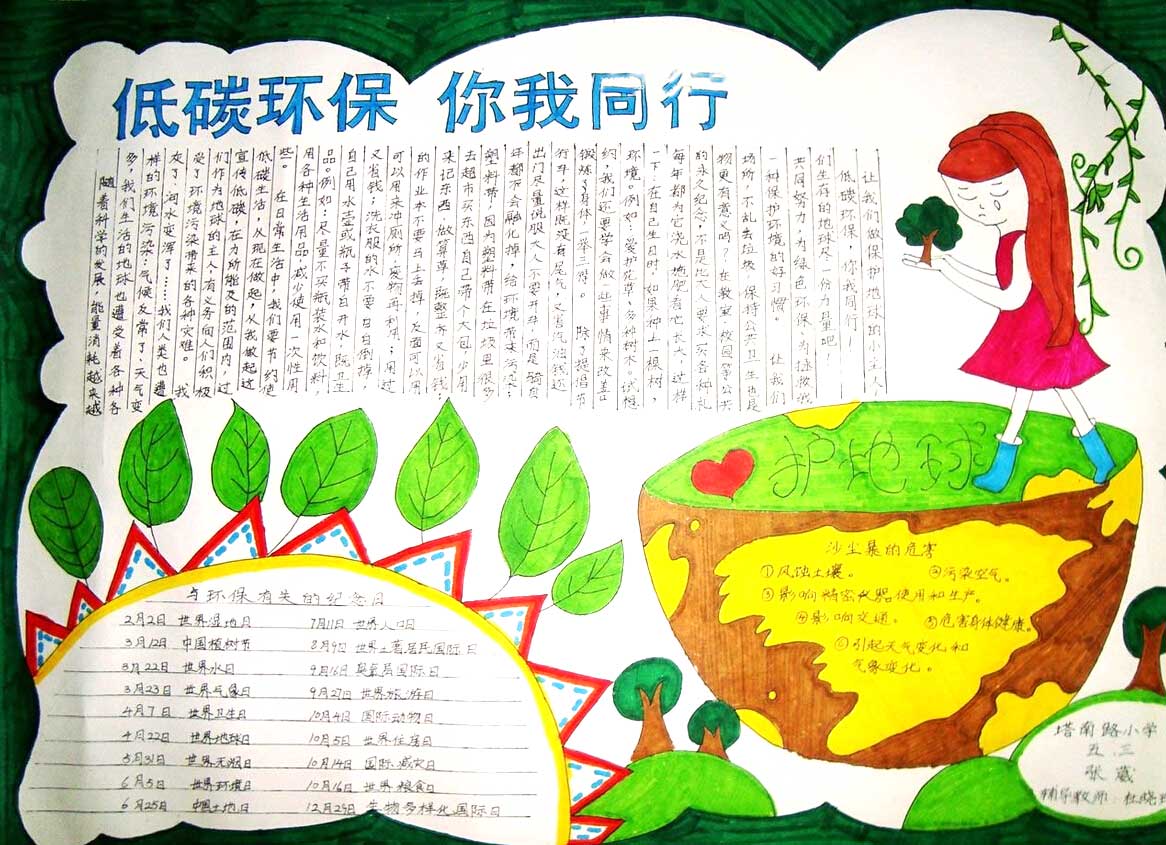 低碳环保 你我同行
随着科学的发展，能量消耗越来越
多，我们生活的地球也遭受着各种各
样的环境污染：气候反常了，天气变
灰了，河水变浑了……我们人类也遭
受了环境污染带来的各种灾难。 我
们作为地球的主人有义务向人们积极
宣传低碳，在力所能及的范围内，过
低碳生活，从现在做起，从我做起这
些。 在日常生活中，我们要节约使
用各种生活用品，减少使用一次性用
品。例如：尽量不买瓶装水和饮料，
自己用水壶或瓶子带白开水，既卫生
又省钱；洗衣服的水不要白白倒掉，
可以用来冲厕所，废物再利用；用过
的作业本不要马上丢掉，反面可以用
来记东西、做算草，既整齐又省钱；
去超市买东西自己带个大包，少用
塑料带，因为塑料带在垃圾里很多
年都不会融化掉，给环境带来污染；
出门尽量说服大人不要开车，而是骑自
行车，这样既没有尾气，又省汽油钱还
锻炼了身体，一举三得。 除了提倡节
约，我们还要学会做一些事情来改善
环境。例如：爱护花草，多种树木。试想
一下：在自己生日时，如果种上一棵树，
每年都为它浇水施肥看它长大，这样
的永久纪念，不是比大人要求买各种礼
物更有意义吗？在教室、校园等公共
场所，不乱丢垃圾，保持公共卫生也是
一种保护环境的好习惯。 让我们
共同努力，为绿色环保，为拯救我
们生存的地球尽一份力量吧！
低碳环保，你我同行！
让我们做保护地球的小主人！
护地球
沙尘暴的危害
①风蚀土壤。 ②污染空气。
③影响精密仪器使用和生产。
④影响交通。 ⑤危害身体健康。
⑥引起天气变化和
气象变化。
与环保有关的纪念日
2月2日 世界湿地日 7月11日 世界人口日
3月12日 中国植树节 8月9日 世界土著居民国际日
3月22日 世界水日 9月16日 臭氧层国际日
3月23日 世界气象日 9月27日 世界旅游日
4月7日 世界卫生日 10月4日 国际动物日
4月22日 世界地球日 10月5日 世界住房日
5月31日 世界无烟日 10月14日 国际减灾日
6月5日 世界环境日 10月16日 世界粮食日
6月25日 中国土地日 12月29日 生物多样化国际日
塔南路小学
五 三
张葳
辅导教师：杜晓